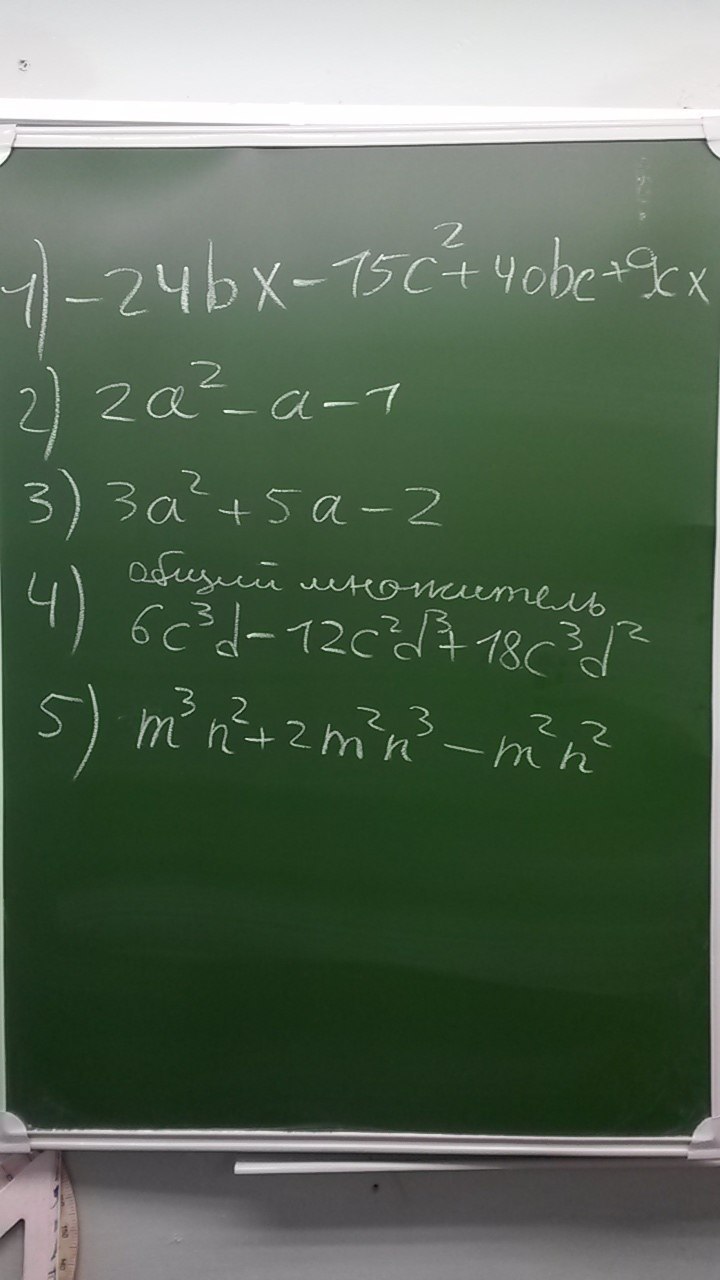 1) -24bx-15c²+40bc+9cx
2) 2a²-a-1
3) 3a²+5a-2
4) общий множитель
6c³d-12c²d³+18c³d²
5) m³n²+2m²n³-m²n²